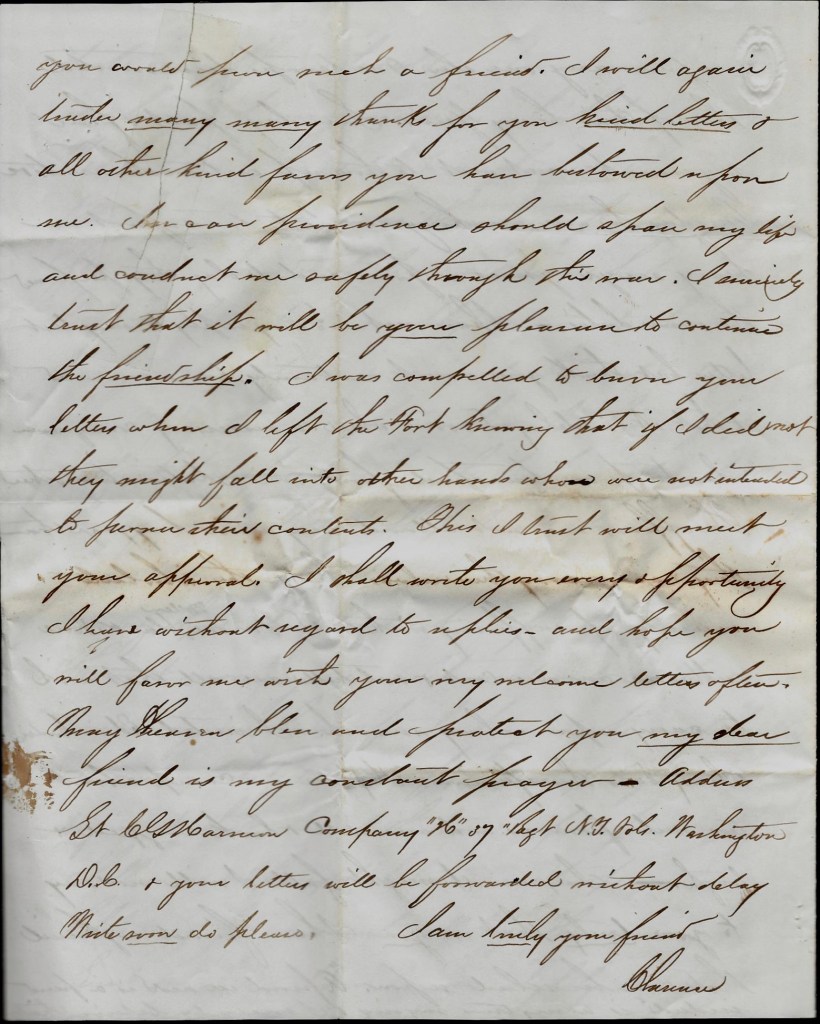 you would prove such a friend. I will again
tender many many thanks for you kind letters &
all other kind favors you have bestowed upon
me. can providence should spare my life
and conduct me safely through this war. I sincerely
trust that it will be your pleasure to continue
the friendship. I was compelled to burn your
letters when I left the Fort knowing that if I did not
they might fall into other hands whom were not intended
to peruse their contents. This I trust will meet
your approval. I shall write you every opportunity
I have without regard to replies - and hope you
will favor me with your very welcome letters often.
May Heaven bless and protect you my dear
friend is my constant prayer - Address
Lt C G Harrison Company "H" 37" Regt N.Y. Vols. Washington
D.C. & your letters will be forwarded without delay
Write soon do please. I am truly your friend
Clarence